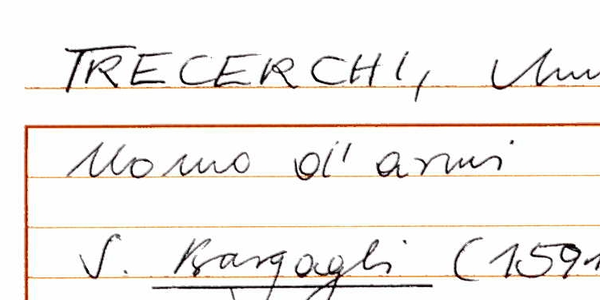 TRECERCHI,
Uomo d'armi
V. Bargagli (1591